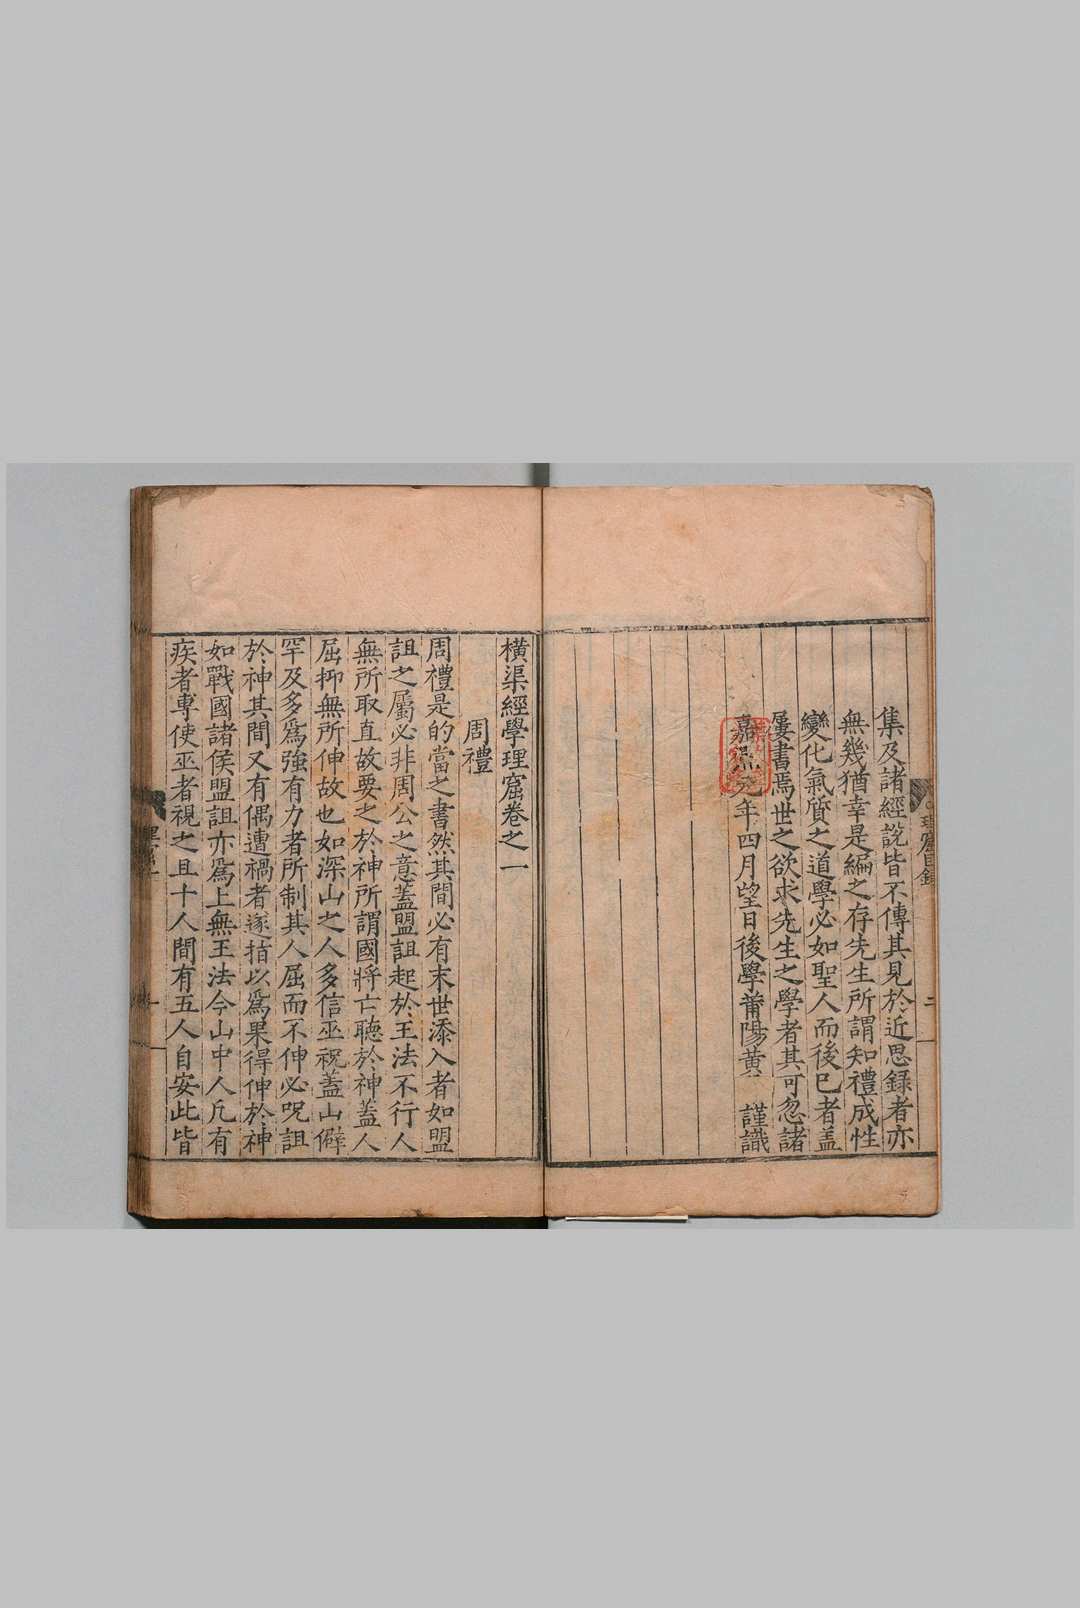 集及諸經説皆不傳其見於近思録者亦
無幾猶幸是編之存先生所謂知禮成性
變化氣質之道學必如聖人而後已者盖
屢書焉世之欲求先生之學者其可忽諸
嘉 年四月望日後學莆陽黄 謹識
橫渠經學理窟卷之一
周禮
周禮是的當之書然其間必有末世添入者如盟
詛之屬必非周公之意蓋盟詛起於王法不行人
無所取直故要之於神所謂國將亡聽於神蓋人
屈抑無所伸故也如深山之人多信巫祝蓋山僻
罕及多爲強有力者所制其人屈而不伸必呪詛
於神其間又有偶遭禍者遂指以爲果得伸於神
如戰國諸侯盟詛亦爲上無王法今山中人凡有
疾者專使巫者視之且十人間有五人自安此皆